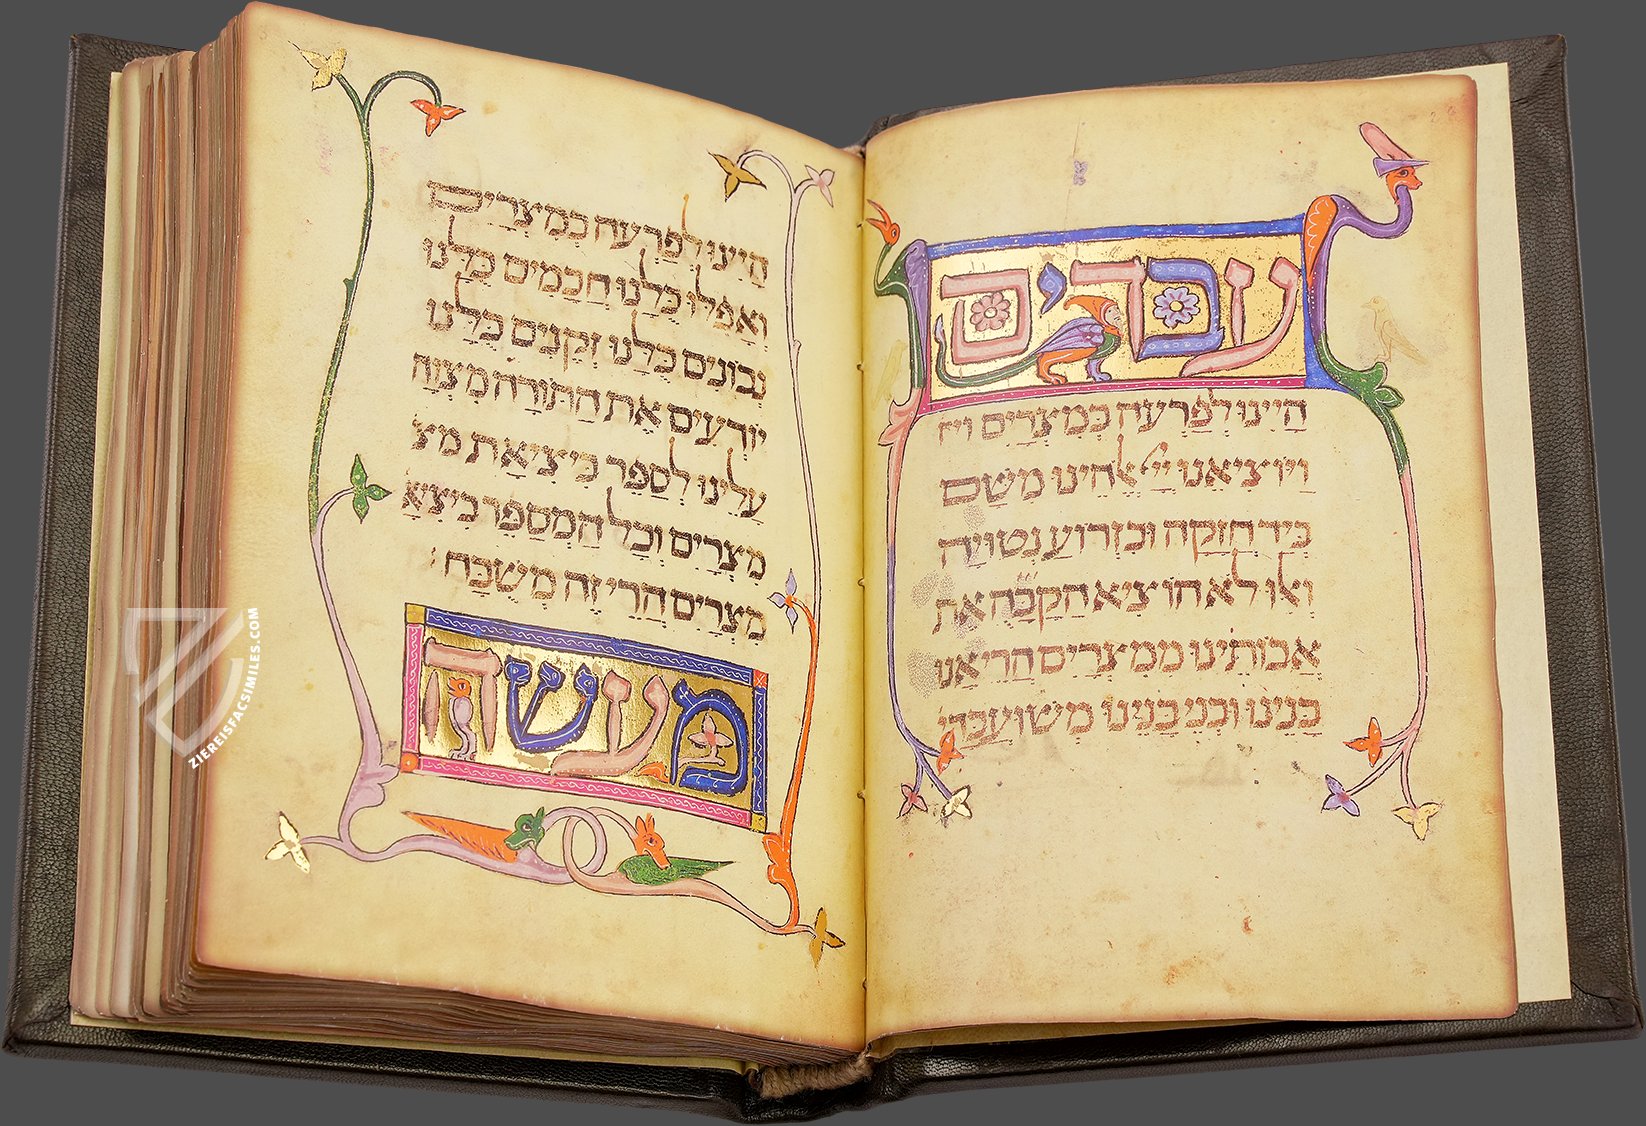 עבדים
היינו לפרעה במצרים וי
ויוציאנו ייי אלהינו משם
ביד חזקה ובזרוע נטויה
ואלו לא הוציא הקבה את
אבותינו ממצרים הרי אנו
בנינו ובני בנינו משועבדי
היינו לפרעה במצרים
ואפלו כלנו חכמים כלנו
נבונים כלנו זקנים כלנו
יודעים את התורה מצוה
עלינו לספר ביציאת מצ
מצרים וכל המספר ביציא
מצרים הרי זה משבח :
מעשה
ZIEREISFACSIMILES.COM